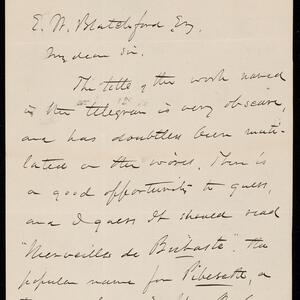 E. W. Blatchford Esq.
My dear Sir.
The title of the work named
in the telegram is very obscure,
and has doubtless been muti-
lated on the wires. There is
a good opportunity to guess,
and I guess it should read
"Merveilles de Bubaste" the
popular name for Pibeseth, a